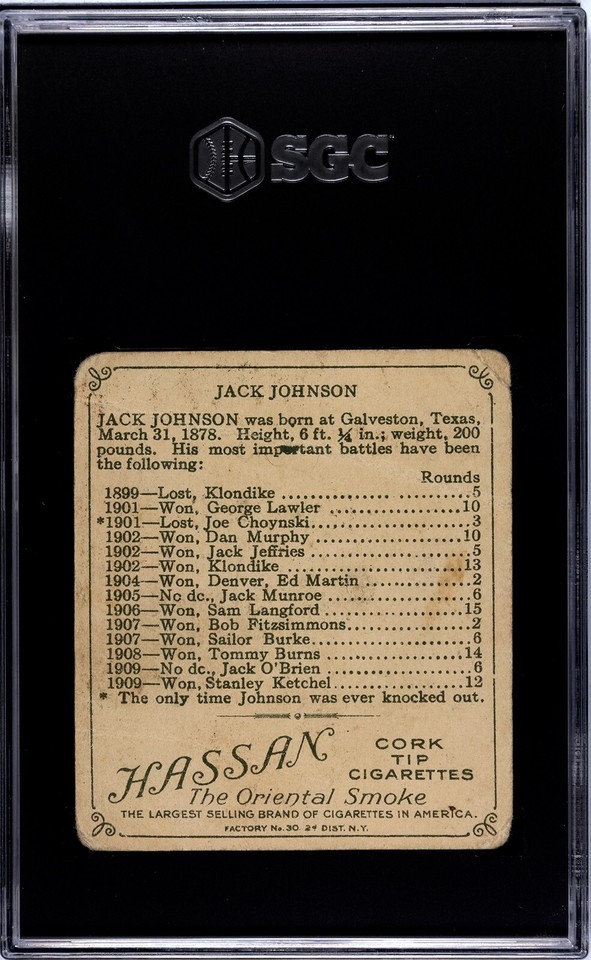 SGC
JACK JOHNSON
JACK JOHNSON was born at Galveston, Texas,
March 31, 1878. Height, 6 ft. ¼ in.; weight, 200
pounds. His most important battles have been
the following:
Rounds
1899—Lost, Klondike ..........................5
1901—Won, George Lawler ....................10
*1901—Lost, Joe Choynski......................3
1902—Won, Dan Murphy ......................10
1902—Won, Jack Jeffries ......................5
1902—Won, Klondike .........................13
1904—Won, Denver, Ed Martin ...............2
1905—No dc., Jack Munroe ...................6
1906—Won, Sam Langford ....................15
1907—Won, Bob Fitzsimmons.................2
1907—Won, Sailor Burke......................6
1908—Won, Tommy Burns ....................14
1909—No dc., Jack O'Brien ...................6
1909—Won, Stanley Ketchel...................12
* The only time Johnson was ever knocked out.
HASSAN
CORK
TIP
CIGARETTES
The Oriental Smoke
THE LARGEST SELLING BRAND OF CIGARETTES IN AMERICA.
FACTORY No. 30 2d DIST. N.Y.